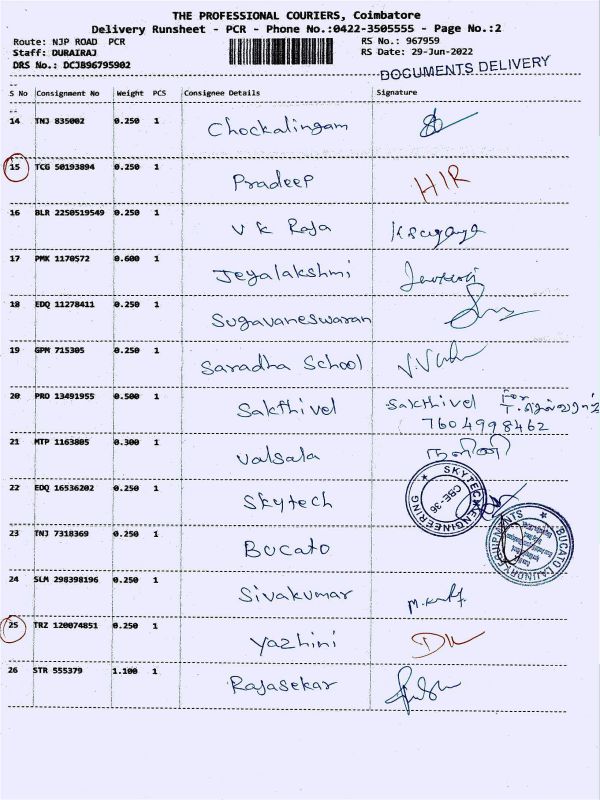 THE PROFESSIONAL COURIERS, Coimbatore
Delivery Runsheet - PCR - Phone No.:0422-3505555 - Page No.:2
Route: NJP ROAD PCR
RS No.: 967959
Staff: DURAIRAJ
RS Date: 29-Jun-2022
DRS No.: DCJB96795902
DOCUMENTS DELIVERY
S No Consignment No Weight PCS Consignee Details Signature
14 TNJ 835002 0.250 1 Chockalingam
15 TCG 50193894 0.250 1 Pradeep HIR
16 BLR 2250519549 0.250 1 V K Raja
17 PMK 1170572 0.600 1 Jeyalakshmi
18 EDQ 11278411 0.250 1 Sugavaneswaran
19 GPM 715305 0.250 1 Saradha School
20 PRO 13491955 0.500 1 Sakthivel Sakthivel For
7604998462
21 MTP 1163805 0.300 1 Valsala நளினி
22 EDQ 16536202 0.250 1 Skytech
SKYTECH ENGINEERING
CBE-36
23 TNJ 7318369 0.250 1 Bucato
BUCATO LAUNDRY EQUIPMENTS
24 SLM 298398196 0.250 1 Sivakumar
25 TRZ 120074851 0.250 1 Yazhini
26 STR 555379 1.100 1 Rajasekar